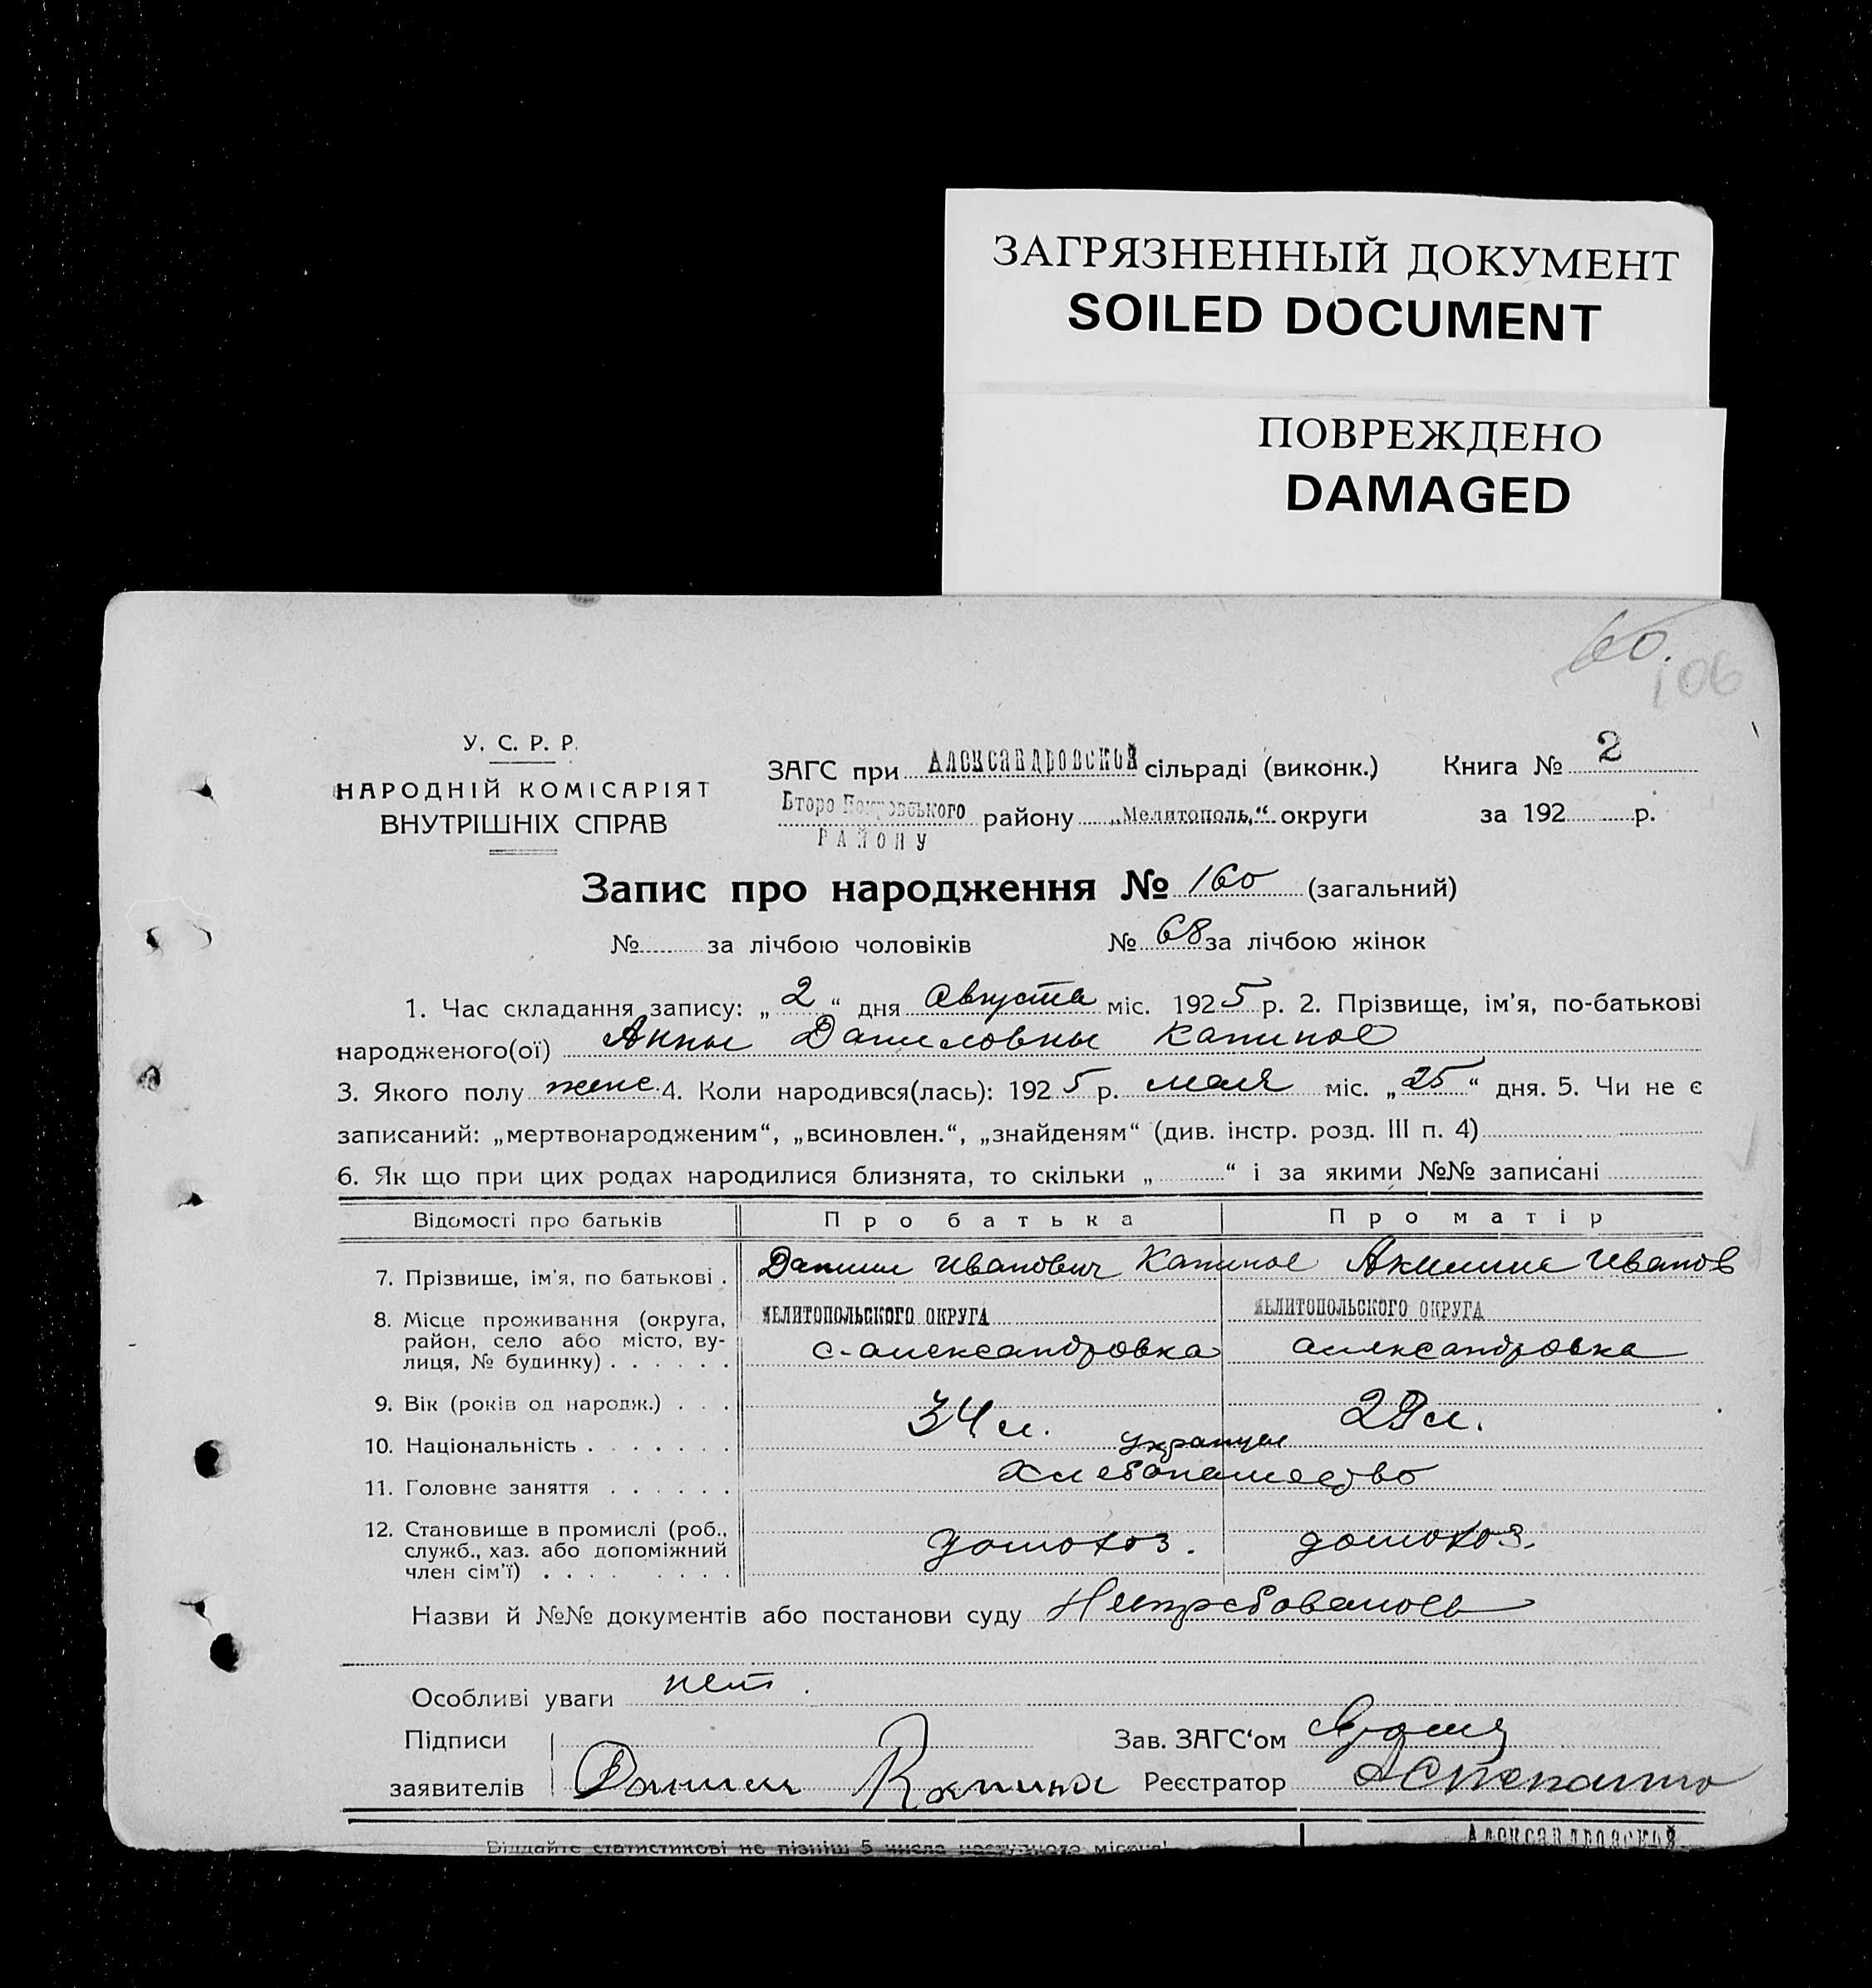 ЗАГРЯЗНЕННЫЙ ДОКУМЕНТ
SOILED DOCUMENT
ПОВРЕЖДЕНО
DAMAGED
60.
106
У. С. Р. Р.
НАРОДНІЙ КОМІСАРІЯТ
ВНУТРІШНІХ СПРАВ
ЗАГС при Александровской сільраді (виконк.) Книга № 2
Второ Покровського району „Мелитополь,“ округи за 192 р.
РАЙОНУ
Запис про народження № 160 (загальний)
№ за лічбою чоловіків № 68 за лічбою жінок
1. Час складання запису: „2“ дня Августа міс. 1925 р. 2. Прізвище, ім'я, по-батькові
народженого(ої) Анны Даниловны
3. Якого полу женс. 4. Коли народився(лась): 1925 р. мая міс. „25“ дня. 5. Чи не є
записаний: „мертвонародженим“, „всиновлен.“, „знайденям“ (див. інстр. розд. III п. 4)
6. Як що при цих родах народилися близнята, то скільки „ “ і за якими №№ записані
Відомості про батьків Про батька Про матір
7. Прізвище, ім'я, по батькові . Данил Иванович Акилина Иванов
8. Місце проживання (округа, район, село або місто, ву-
лиця, № будинку) . . . . . . МЕЛИТОПОЛЬСКОГО ОКРУГА МЕЛИТОПОЛЬСКОГО ОКРУГА
с. александровка александровка
9. Вік (років од народж.) . . . 34 л. 29 л.
10. Національність . . . . . . .
11. Головне заняття . . . . . . Хлебопашество
12. Становище в промислі (роб.,
служб., хаз. або допоміжний
член сім'ї) . . . . . . . . домохоз. домохоз.
Назви й №№ документів або постанови суду Нетребовалось
Особливі уваги нет.
Підписи Зав. ЗАГС'ом
заявителів Данил Реєстратор
Віддайте статистикові не пізніш 5 числа наступного місяця!
Александровской